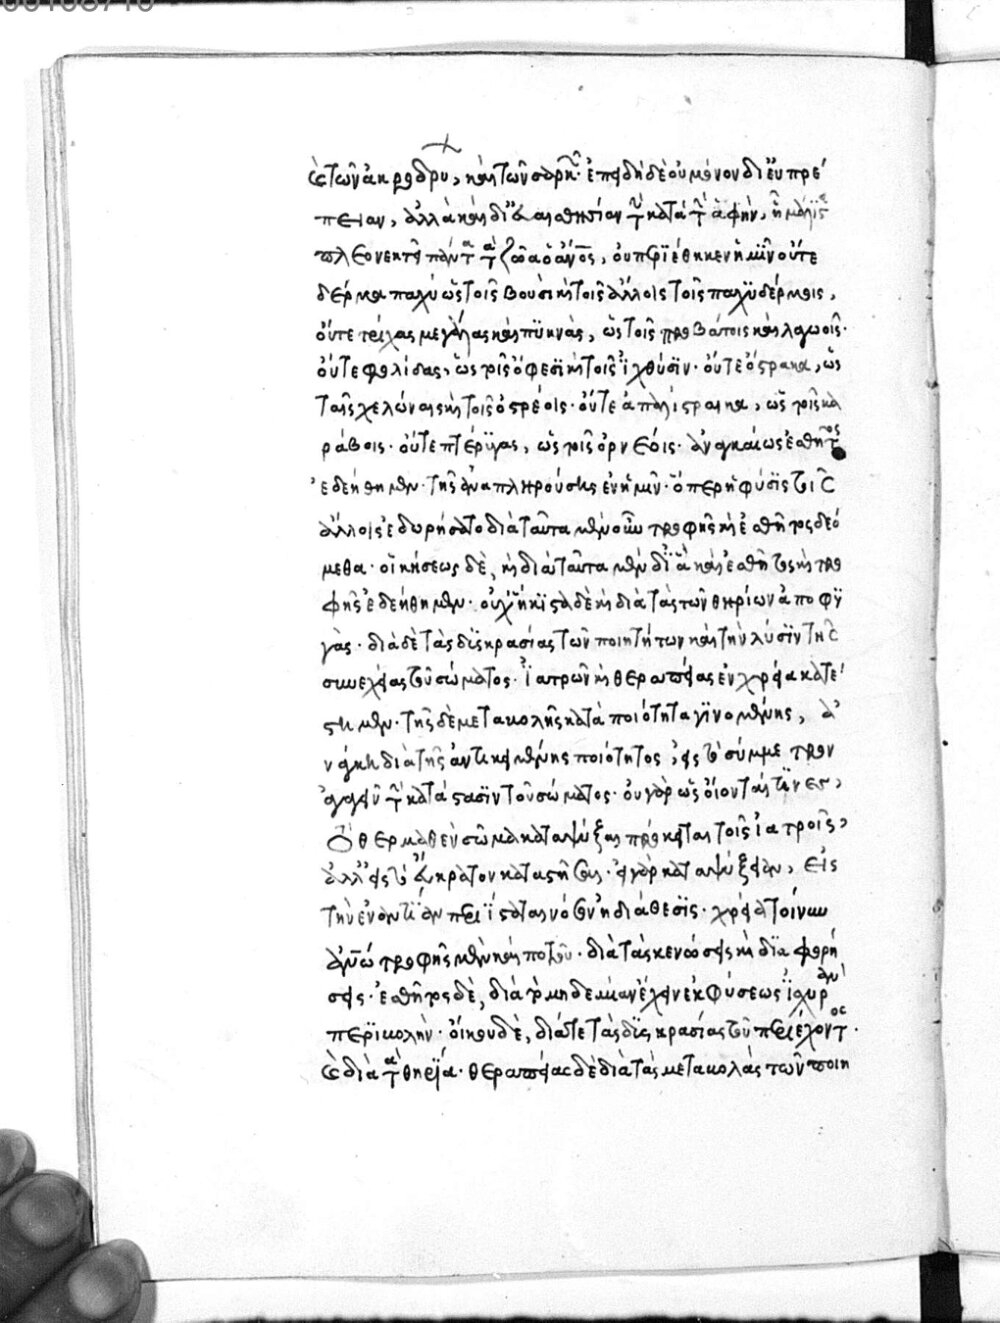 καὶ τῶν ἀκροδρύ, καὶ τῶν σαρκῶν· ἐπειδὴ δὲ οὐ μόνον δι εὐπρέ
πειαν, ἀλλὰ καὶ δι αἰσθησίαν τὴν κατὰ τὴν ἁφὴν, ᾗ μάλιστα
πλεονεκτεῖ πάντα τὰ ζῶα ὁ ἄνος, οὐ περιέθηκεν ἡμῖν οὔτε
δέρμα παχὺ ὡς τοῖς βουσὶ κὴ τοῖς ἄλλοις τοῖς παχυδέρμοις,
οὔτε τρίχας μεγάλας καὶ πυκνὰς, ὡς τοῖς προβάτοις καὶ λαγωοῖς·
οὔτε φολίδας, ὡς τοῖς ὄφεσι κὴ τοῖς ἰχθύσιν· οὔτε ὄστρακα, ὡς
ταῖς χελώναις κὴ τοῖς ὀστρέοις· οὔτε ἁπαλόστρακα, ὡς τοῖς κα
ράβοις· οὔτε πτέρυγας, ὡς τοῖς ὀρνέοις· ἀναγκαίως ἐσθῆτος
ἐδεήθημεν· τῆς ἀναπληρούσης ἐν ἡμῖν· ὅπερ ἡ φύσις τοῖς
ἄλλοις ἐδωρήσατο διὰ ταῦτα μὲν οὖν τροφῆς κὴ ἐσθῆτος δεό
μεθα· οἰκήσεως δὲ, κὴ διὰ ταῦτα μὲν δι ἃ καὶ ἐσθῆτος κὴ τρο
φῆς ἐδεήθημεν· οὐχ ἥκιστα δὲ κὴ διὰ τὰς τῶν θηρίων ἀποφυ
γάς· διὰ δὲ τὰς δυσκρασίας τῶν ποιητήτων καὶ τὴν λύσιν τῆς
συνεχείας τοῦ σώματος· ἰατρῶν κὴ θεραπείας ἐν χρεία κατέ
στημεν· τῆς δὲ μεταβολῆς κατὰ ποιότητα γινομένης, ἀ
νάγκη διὰ τῆς ἀντικειμένης ποιότητος, εἰς τὸ σύμμετρον
ἀγαγεῖν τὴν κατάστασιν τοῦ σώματος· οὐ γὰρ ὡς οἴονταί τινες,
τὸ θερμαθὲν σῶμα καταψῦξαι πρόκειται τοῖς ἰατροῖς,
ἀλλ εἰς τὸ εὔκρατον καταστῆσαι· εἰ γὰρ καταψύξειαν, εἰς
τὴν ἐναντίαν περιίσταται νόσον ἡ διάθεσις· χρεία τοίνυν
ἀνω τροφῆς μὲν καὶ ποτοῦ· διὰ τὰς κενώσεις κὴ διαφορή
σεις· ἐσθῆτος δὲ, διὰ τὸ μηδεμίαν ἔχειν ἐκ φύσεως ἰσχυρὰν
περιβολήν· οἴκου δὲ, διά τε τὰς δυσκρασίας τοῦ περιέχοντος·
καὶ διὰ τὰ θηρία· θεραπείας δὲ διὰ τὰς μεταβολὰς τῶν ποιη